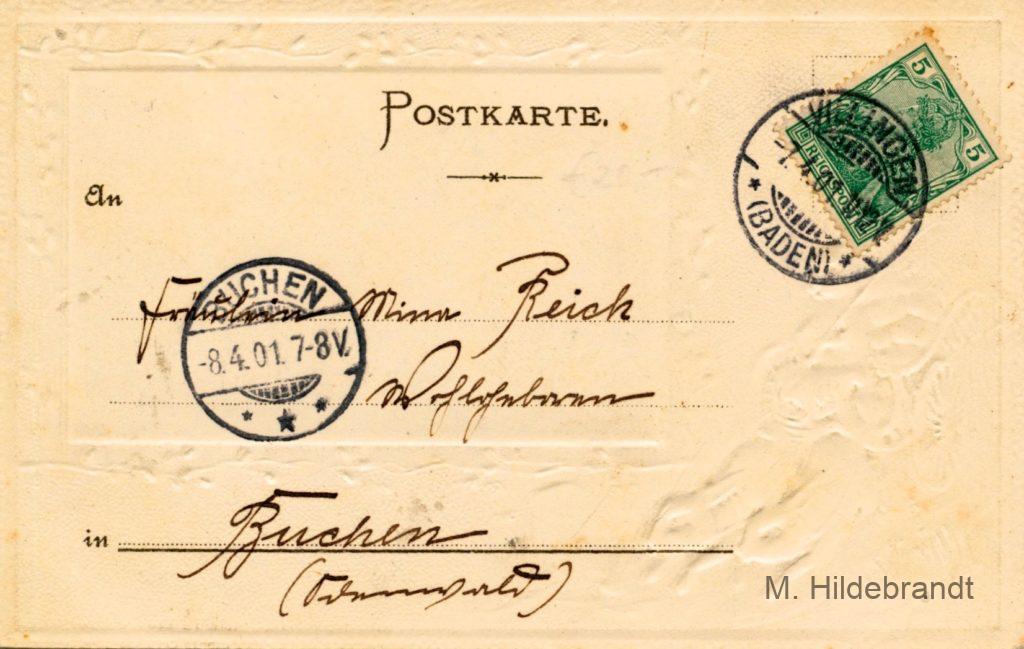 POSTKARTE.
5
5
REICHSPOST
VILLINGEN
-7.4.01
* (BADEN) *
An
BUCHEN
-8.4.01. 7-8V.
Fräulein Mina Reick
Wohlgeboren
in Buchen
(Odenwald)
M. Hildebrandt